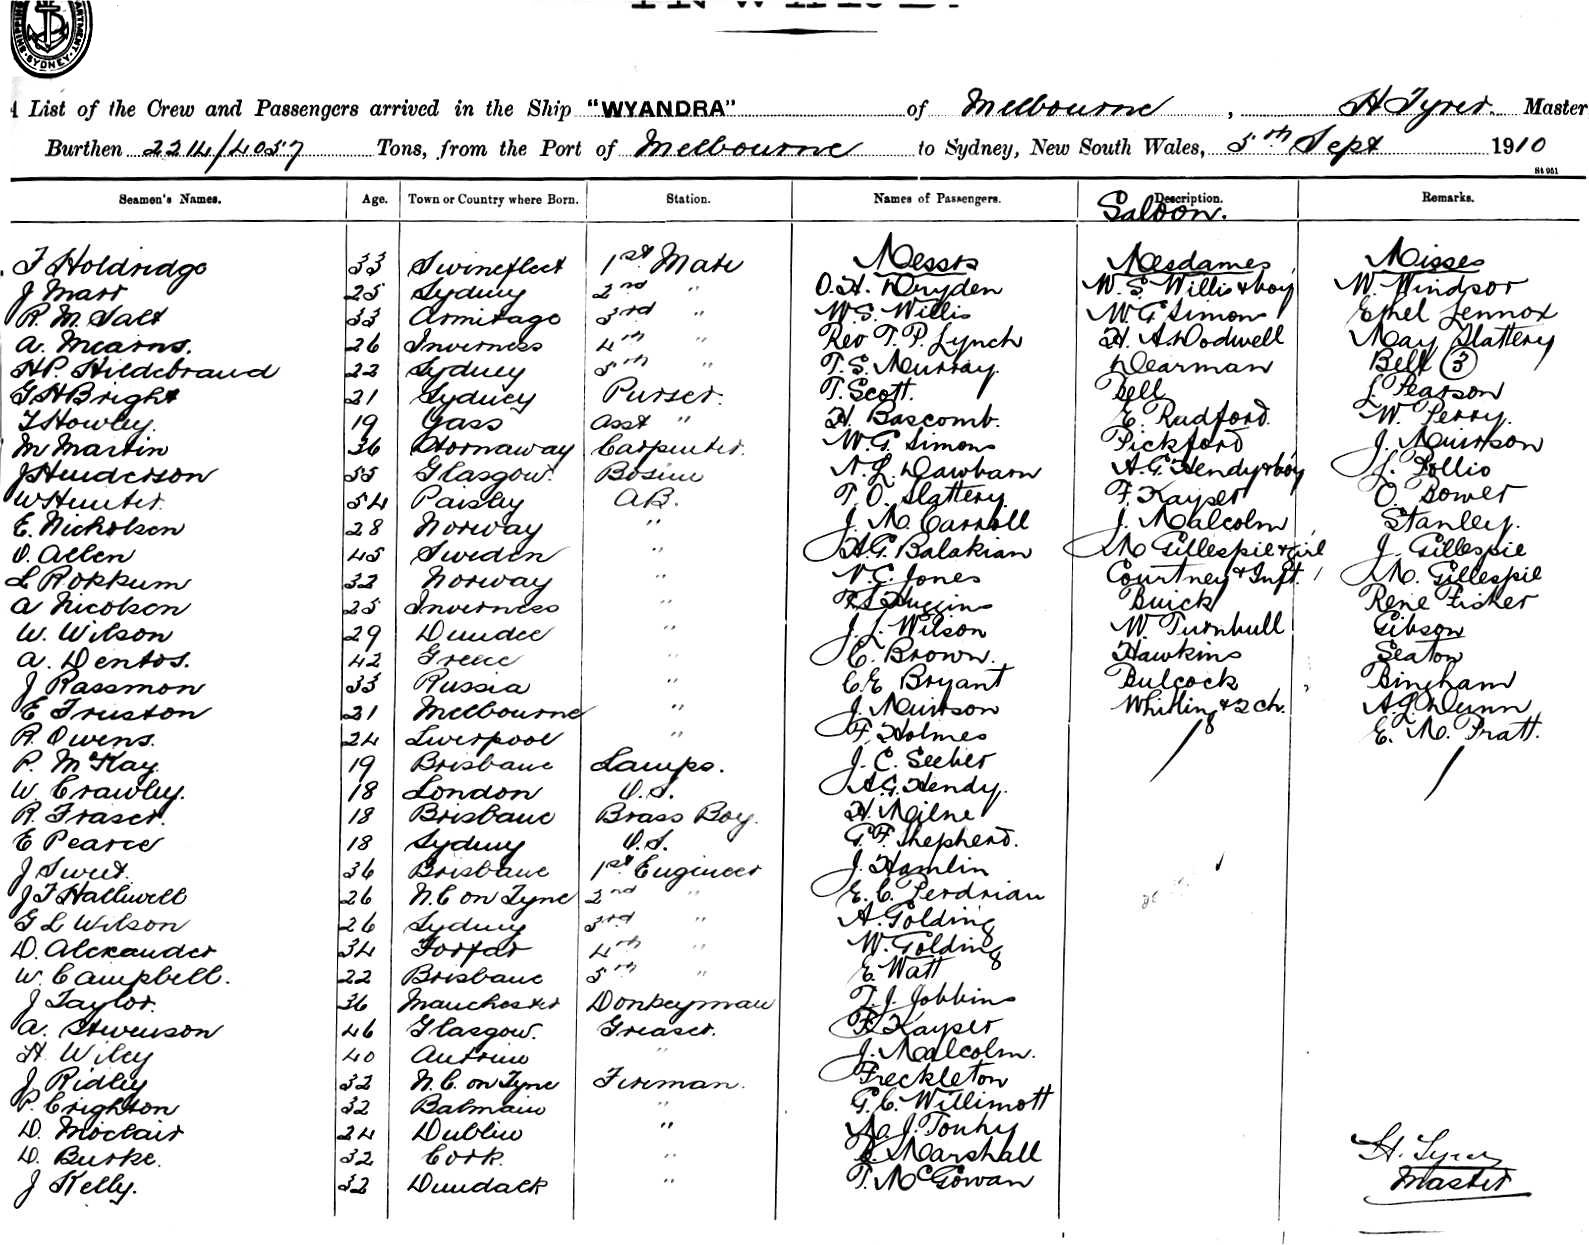 SHIPPING DEPARTMENT SYDNEY
INWARD.
A List of the Crew and Passengers arrived in the Ship "WYANDRA" of Melbourne, H Tyrer. Master
Burthen 2214/4057 Tons, from the Port of Melbourne to Sydney, New South Wales, 5th Sept 1910
St 951
Seamen's Names. Age. Town or Country where Born. Station. Names of Passengers. Description. Remarks.
Saloon.
F Holdridge 33 Swinefleet 1st Mate Messrs Mesdames Misses
J Marr 25 Sydney 2nd " O.H. Dryden W.S. Willis & boy W. Windsor
R. M. Salt 33 Armitage 3rd " W.S. Willis W G Simons Ethel Lennox
A. Mearns. 26 Inverness 4th " Rev T. P. Lynch H. A. Dodwell May Slattery
H.P. Hildebrand 22 Sydney 5th " T. S. Murray. Dearman Bell (3)
G H Bright 21 Sydney Purser. T. Scott. Bell L. Pearson
T Howley. 19 Gass Asst " H. Bascomb. E. Radford. W. Perry.
M Martin 36 Stornaway Carpenter. W. G. Simons Pickford J. Muirson
J Henderson 55 Glasgow. Bosun N. L. Dawbarn A. G. Hendy & boy L. Pollio
W Hunter. 54 Paisley AB. T. O. Slattery. F. Kayser O. Bower
E. Nicholson 28 Norway " J. M. Carroll J. Malcolm Stanley.
O. Allen 45 Sweden " A. G. Balakian M Gillespie & girl J. Gillespie
L Rokkum 32 Norway " N. C. Jones Courtney & Inft. M. Gillespie
A Nicolson 25 Inverness " Huggins Buick Rene Fisher
W. Wilson 29 Dundee " J. L. Wilson W. Turnbull Gibson
A. Dentos. 42 Greece " C. Brown. Hawkins Seaton
J Rassmon 33 Russia " C E Bryant Bulcock Bingham
E Truston 21 Melbourne " J. Muirson Whitling & 2 ch. A. L. Dunn
R. Owens. 24 Liverpool " F. Holmes 18 E. M. Pratt.
P. McKay. 19 Brisbane Lamps. J. C. Seeber
W. Crawley. 18 London O.S. A. G. Hendy.
R. Fraser. 18 Brisbane Brass Boy. H. Milne
E Pearce 18 Sydney O.S. G. F. Shepherd.
J Sweet. 36 Brisbane 1st Engineer J. Hamlin
J F Halliwell 26 N.C. on Tyne 2nd " E. C. Perdriau
G L Wilson 26 Sydney 3rd " A. Golding
D. Alexander 34 Forfar 4th " W. Golding
W. Campbell. 22 Brisbane 5th " E. Watt
J Taylor. 36 Manchester Donkeyman T. J. Jobbins
A. Stevenson 46 Glasgow. Greaser. F. Kayser
H. Wiley 40 Antrim " J. Malcolm.
J Ridley 32 N.C. on Tyne Fireman. Freckleton
P. Crighton 32 Balmain " G. C. Willimott
D. Moclair 24 Dublin " J. Touhy
D. Burke. 32 Cork. " Marshall
J Kelly. 32 Dundalk " T. McGowan
H. Tyrer
Master